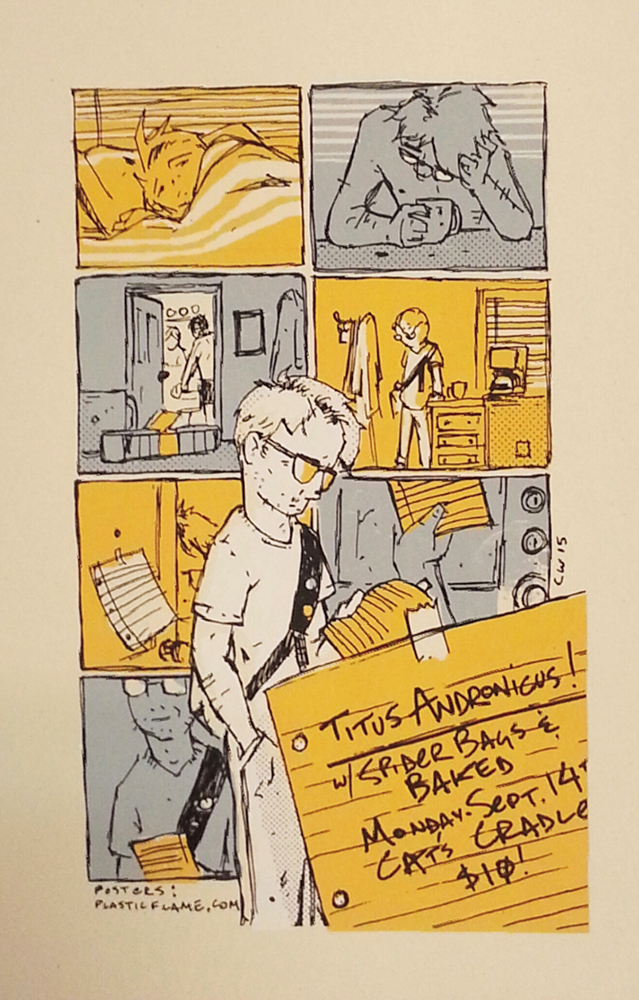 CW 15
TITUS ANDRONICUS!
W/ SPIDER BAGS &
BAKED
MONDAY. SEPT. 14TH
CAT'S CRADLE
$10!
POSTERS:
PLASTICFLAME.COM